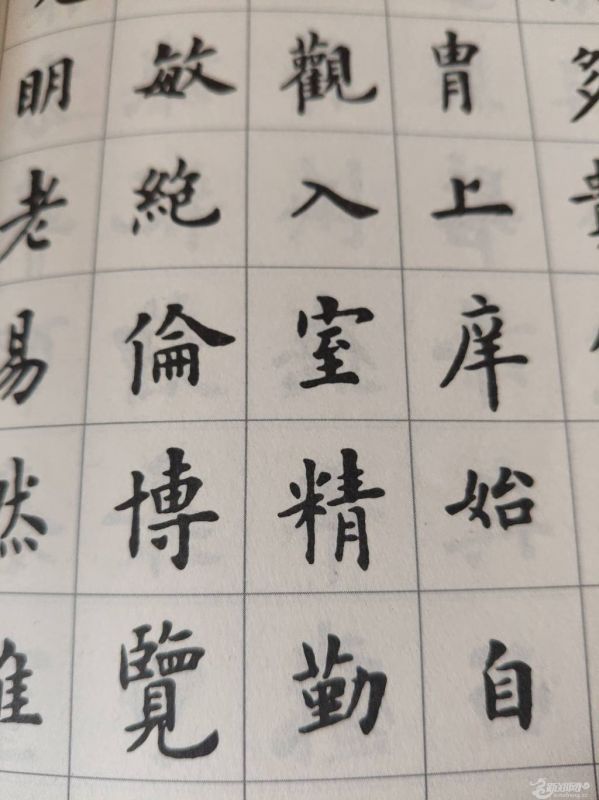 胄上庠始自
觀入室精勤
敏絶倫博覽
明老易然